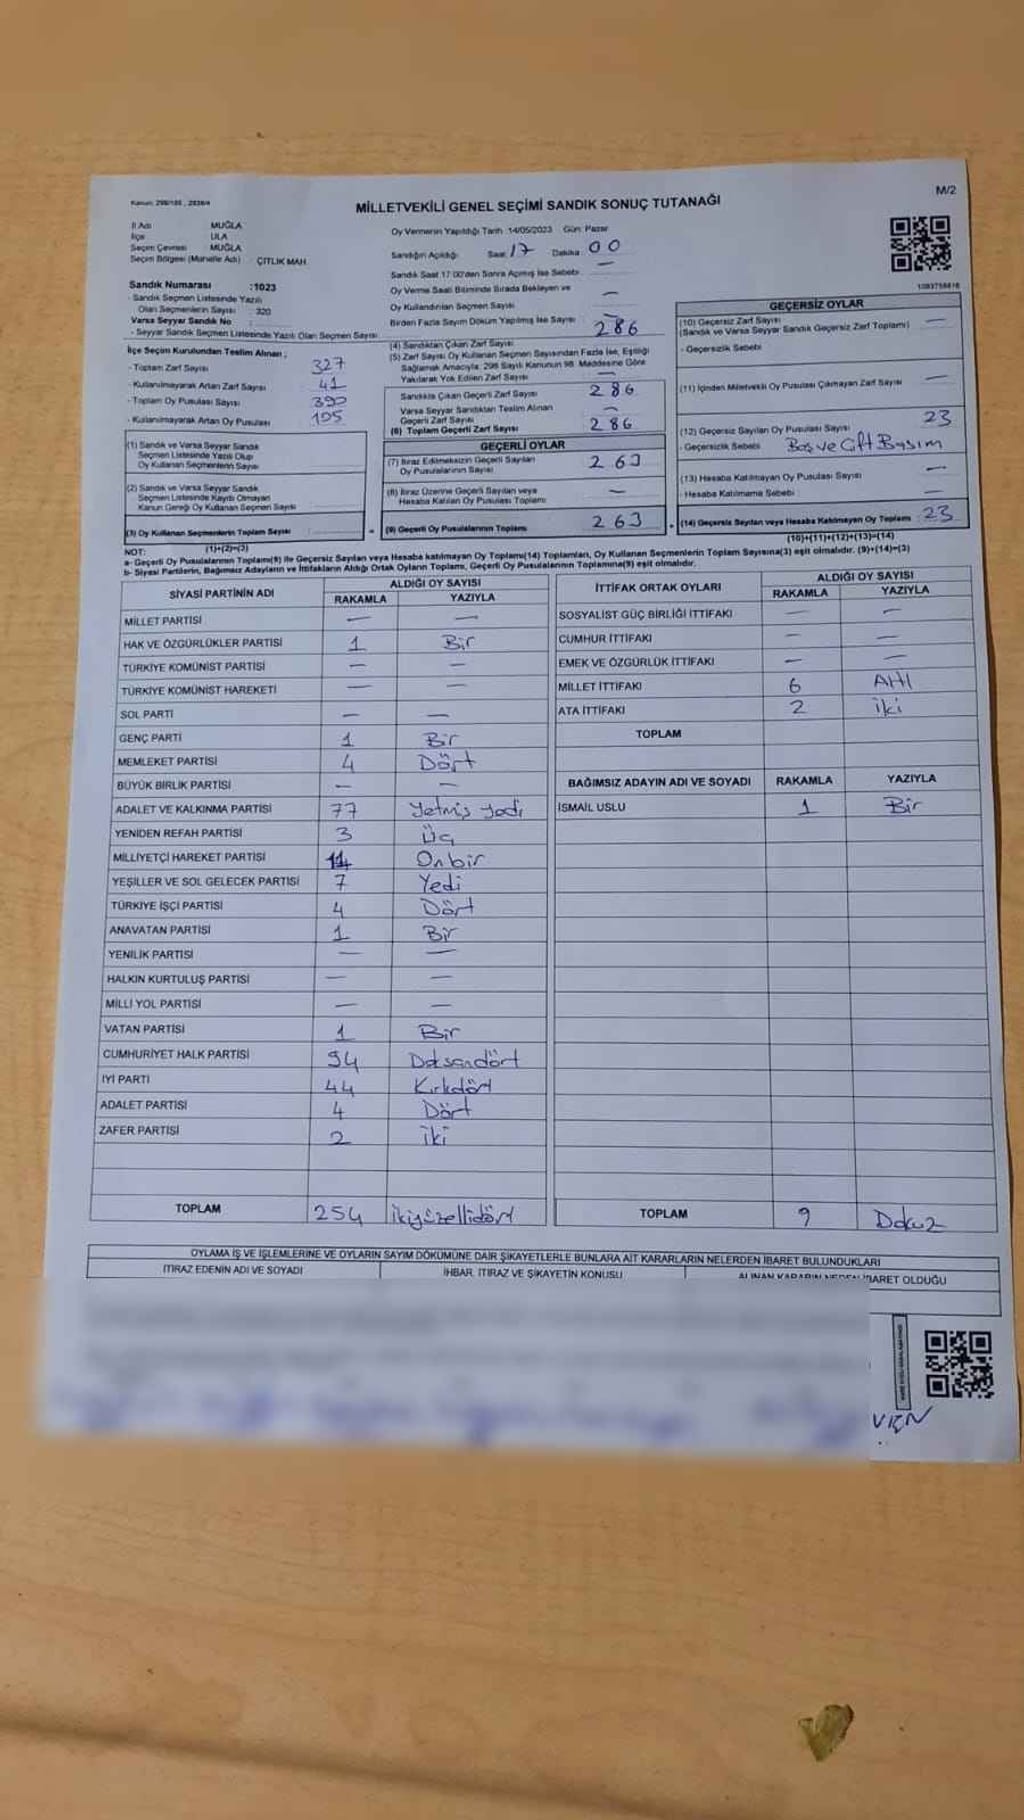 M/2
MİLLETVEKİLİ GENEL SEÇİMİ SANDIK SONUÇ TUTANAĞI
İl Adı MUĞLA
İlçe ULA
Seçim Çevresi MUĞLA
Seçim Bölgesi (Mahalle Adı) ÇITLIK MAH.
Sandık Numarası :1023
- Sandık Seçmen Listesinde Yazılı
Olan Seçmenlerin Sayısı : 320
Varsa Seyyar Sandık No
- Seyyar Sandık Seçmen Listesinde Yazılı Olan Seçmen Sayısı
İlçe Seçim Kurulundan Teslim Alınan ;
- Toplam Zarf Sayısı 327
- Kullanılmayarak Artan Zarf Sayısı 41
- Toplam Oy Pusulası Sayısı 390
- Kullanılmayarak Artan Oy Pusulası
(1) Sandık ve Varsa Seyyar Sandık
Seçmen Listesinde Yazılı Olup
Oy Kullanan Seçmenlerin Sayısı
(2) Sandık ve Varsa Seyyar Sandık
Seçmen Listesinde Kaydı Olmayan
Kanun Gereği Oy Kullanan Seçmen Sayısı
(3) Oy Kullanan Seçmenlerin Toplam Sayısı
(1)+(2)=(3)
Oy Vermenin Yapıldığı Tarih :14/05/2023 Gün: Pazar
Sandığın Açıldığı Saat 17 Dakika 00
Sandık Saat 17:00'den Sonra Açılmış İse Sebebi —
Oy Verme Saati Bitiminde Sırada Bekleyen ve
Oy Kullandırılan Seçmen Sayısı —
Birden Fazla Sayım Döküm Yapılmış İse Sayısı —
(4) Sandıktan Çıkan Zarf Sayısı 286
(5) Zarf Sayısı Oy Kullanan Seçmen Sayısından Fazla İse, Eşitliği
Sağlamak Amacıyla 298 Sayılı Kanunun 98. Maddesine Göre
Yakılarak Yok Edilen Zarf Sayısı —
Sandıkta Çıkan Geçerli Zarf Sayısı 286
Varsa Seyyar Sandıktan Teslim Alınan
Geçerli Zarf Sayısı —
(6) Toplam Geçerli Zarf Sayısı 286
GEÇERLİ OYLAR
(7) İtiraz Edilmeksizin Geçerli Sayılan
Oy Pusulalarının Sayısı 263
(8) İtiraz Üzerine Geçerli Sayılan veya
Hesaba Katılan Oy Pusulası Toplamı —
(9) Geçerli Oy Pusulalarının Toplamı 263
GEÇERSİZ OYLAR
(10) Geçersiz Zarf Sayısı —
(Sandık ve Varsa Seyyar Sandık Geçersiz Zarf Toplamı)
- Geçersizlik Sebebi
(11) İçinden Milletvekili Oy Pusulası Çıkmayan Zarf Sayısı —
(12) Geçersiz Sayılan Oy Pusulası Sayısı 23
- Geçersizlik Sebebi Boş ve Çift Basım
(13) Hesaba Katılmayan Oy Pusulası Sayısı —
- Hesaba Katılmama Sebebi —
(14) Geçersiz Sayılan veya Hesaba Katılmayan Oy Toplamı 23
(10)+(11)+(12)+(13)=(14)
NOT:
a- Geçerli Oy Pusulalarının Toplamı(9) ile Geçersiz Sayılan veya Hesaba katılmayan Oy Toplamı(14) Toplamları, Oy Kullanan Seçmenlerin Toplam Sayısına(3) eşit olmalıdır. (9)+(14)=(3)
b- Siyasi Partilerin, Bağımsız Adayların ve İttifakların Aldığı Ortak Oyların Toplamı, Geçerli Oy Pusulalarının Toplamına(9) eşit olmalıdır.
SİYASİ PARTİNİN ADI ALDIĞI OY SAYISI
RAKAMLA YAZIYLA
MİLLET PARTİSİ — —
HAK VE ÖZGÜRLÜKLER PARTİSİ 1 Bir
TÜRKİYE KOMÜNİST PARTİSİ — —
TÜRKİYE KOMÜNİST HAREKETİ — —
SOL PARTİ — —
GENÇ PARTİ 1 Bir
MEMLEKET PARTİSİ 4 Dört
BÜYÜK BİRLİK PARTİSİ — —
ADALET VE KALKINMA PARTİSİ 77 Yetmiş yedi
YENİDEN REFAH PARTİSİ 3 Üç
MİLLİYETÇİ HAREKET PARTİSİ 11 Onbir
YEŞİLLER VE SOL GELECEK PARTİSİ 7 Yedi
TÜRKİYE İŞÇİ PARTİSİ 4 Dört
ANAVATAN PARTİSİ 1 Bir
YENİLİK PARTİSİ — —
HALKIN KURTULUŞ PARTİSİ — —
MİLLİ YOL PARTİSİ — —
VATAN PARTİSİ 1 Bir
CUMHURİYET HALK PARTİSİ 94 Doksandört
İYİ PARTİ 44 Kırkdört
ADALET PARTİSİ 4 Dört
ZAFER PARTİSİ 2 iki
TOPLAM 254 ikiyüzellidört
İTTİFAK ORTAK OYLARI ALDIĞI OY SAYISI
RAKAMLA YAZIYLA
SOSYALİST GÜÇ BİRLİĞİ İTTİFAKI — —
CUMHUR İTTİFAKI — —
EMEK VE ÖZGÜRLÜK İTTİFAKI — —
MİLLET İTTİFAKI 6 Altı
ATA İTTİFAKI 2 iki
TOPLAM
BAĞIMSIZ ADAYIN ADI VE SOYADI RAKAMLA YAZIYLA
İSMAİL USLU 1 Bir
TOPLAM 9 Dokuz
OYLAMA İŞ VE İŞLEMLERİNE VE OYLARIN SAYIM DÖKÜMÜNE DAİR ŞİKAYETLERLE BUNLARA AİT KARARLARIN NELERDEN İBARET BULUNDUKLARI
İTİRAZ EDENİN ADI VE SOYADI İHBAR, İTİRAZ VE ŞİKAYETİN KONUSU ALINAN KARARIN NEDEN İBARET OLDUĞU